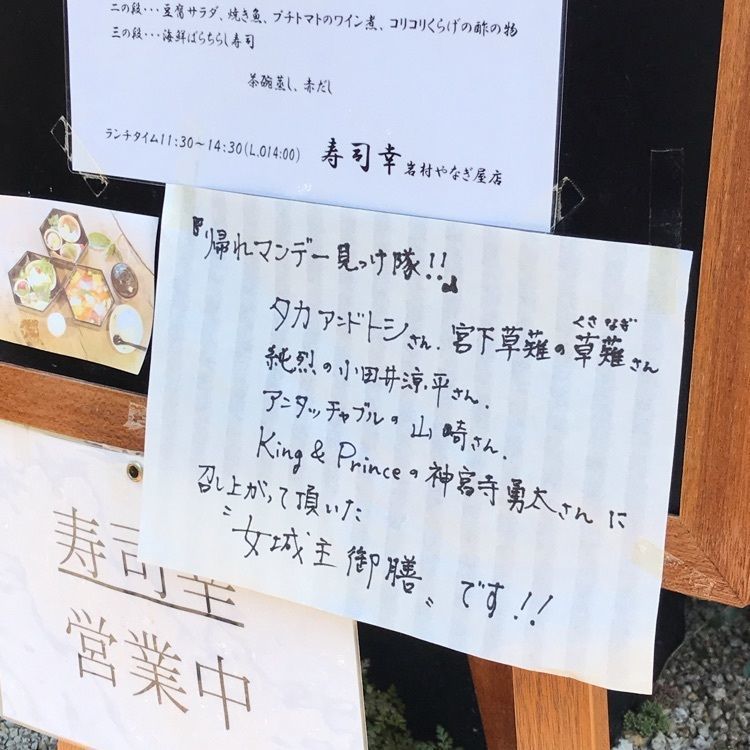 二の段･･･豆腐サラダ、焼き魚、プチトマトのワイン煮、コリコリくらげの酢の物
三の段･･･海鮮ばらちらし寿司
茶碗蒸し、赤だし
ランチタイム11:30~14:30(L.O14:00) 寿司幸 岩村やなぎ屋店
『帰れマンデー見っけ隊!!』
タカアンドトシさん.宮下草薙の草薙さん
くさなぎ
純烈の小田井涼平さん.
アンタッチャブルの山崎さん.
King & Princeの神宮寺勇太さんに
召し上がって頂いた
〝女城主御膳〟です!!
寿司幸
営業中